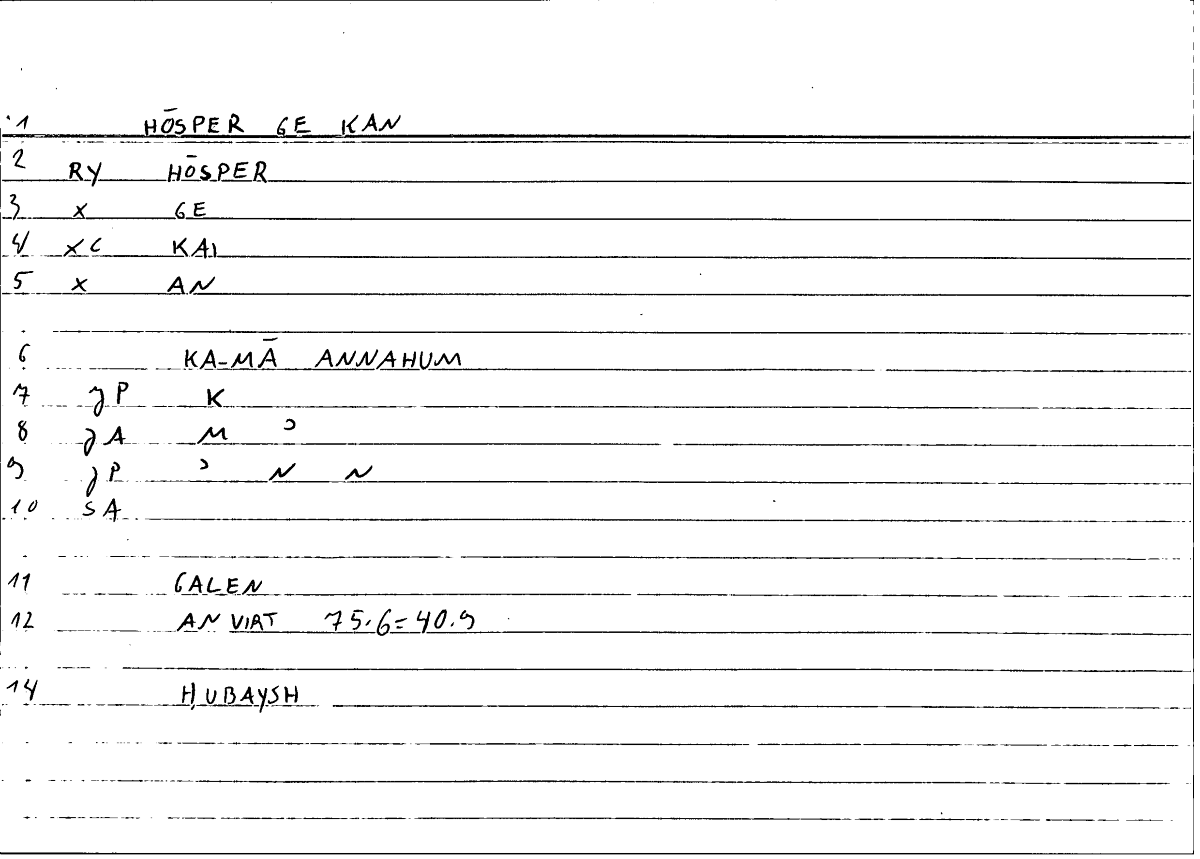 1 HŌSPER GE KAN
2 RY HŌSPER
3 X GE
4 XC KAI
5 X AN
6 KA-MĀ ANNAHUM
7 JP K
8 JA M ʾ
9 JP ʾ N N
10 SA
11 GALEN
12 AN VIRT 75.6=40.9
14 ḤUBAYSH